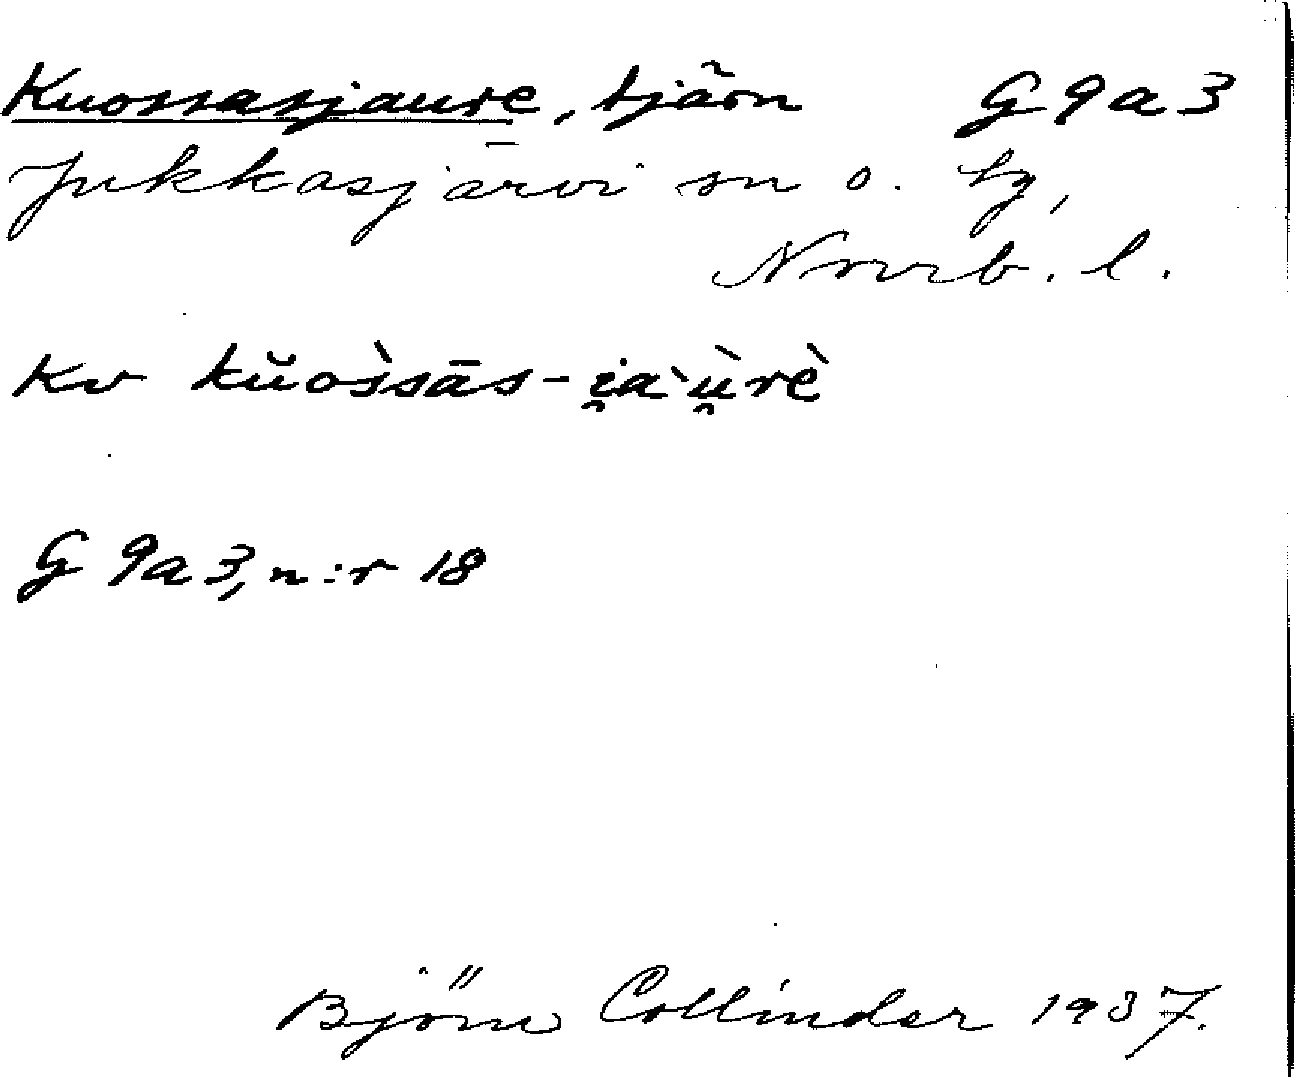 Kuossasjaure, tjärn G 9 a 3
Jukkasjärvi sn o. tg,
Norrb. l.
Kv kŭos̀sās-i̯a`ù̯rè
G 9a3, n:r 18
Björn Collinder 1937.